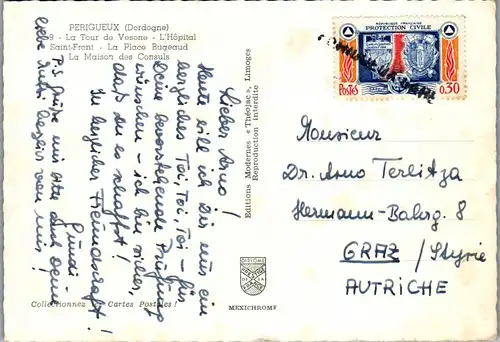 PERIGUEUX (Dordogne)
9 - La Tour de Vesone - L'Hôpital
Saint-Front - La Place Bugeaud
La Maison des Consuls
Lieber Arno!
Heute will ich Dir nur ein
herzliches Toi, Toi, Toi - für
Deine bevorstehende Prüfung
wünschen - ich bin sicher,
daß du es schaffst!
In herzlicher Freundschaft!
Gundi
P.S. Grüße mir bitte auch Deine
liebe Mutti herzlich von mir!
Collectionnez les Cartes Postales!
Editions Modernes « Théojac », Limoges
Reproduction interdite
MEXICHROME
RÉPUBLIQUE FRANÇAISE
PROTECTION CIVILE
POSTES 0,30
Monsieur
Dr. Arno Terlitza
Hermann-Bahrg. 8
GRAZ / Styrie
AUTRICHE